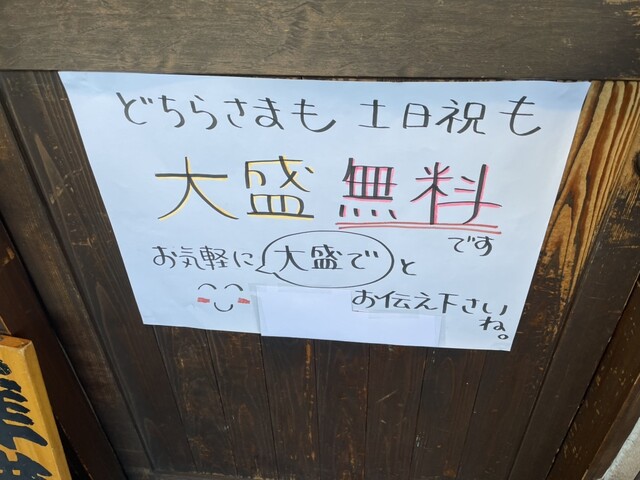 どちらさまも 土日祝も
大盛 無料
です
お気軽に 大盛で と
お伝え下さい
ね。